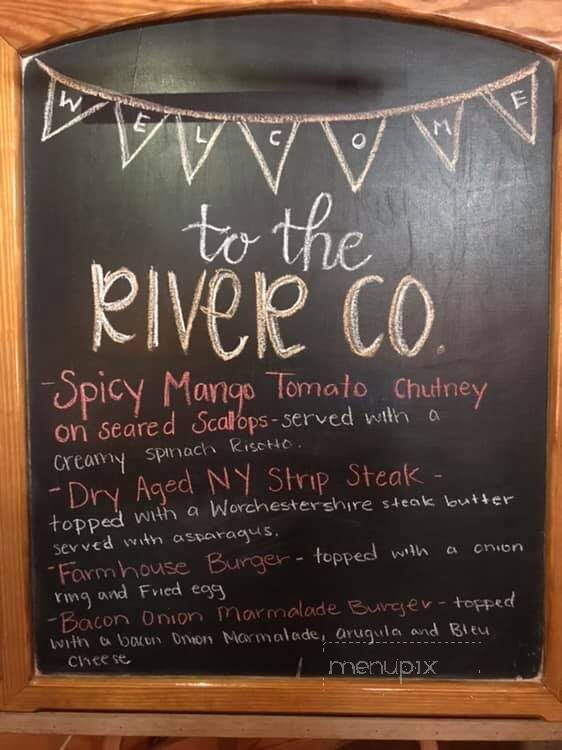 WELCOME
to the
RIVER CO.
-Spicy Mango Tomato Chutney
on seared Scallops-served with a
creamy spinach Risotto.
-Dry Aged NY Strip Steak -
topped with a Worchestershire steak butter
served with asparagus.
-Farmhouse Burger- topped with a onion
ring and Fried egg
-Bacon Onion Marmalade Burger - topped
with a bacon Onion Marmalade, arugula and Bleu
cheese
menupix